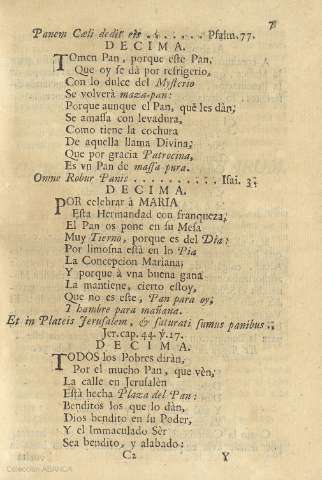 7
Panem Cœli dedit eis . . . . . . . Psalm. 77.
DECIMA.
TOmen Pan, porque este Pan,
Que oy se dà por refrigerio,
Con lo dulce del Mysterio
Se volverà maza-pan:
Porque aunque el Pan, què les dàn;
Se amassa con levadura,
Como tiene la cochura
De aquella llama Divina;
Que por gracia Patrocina,
Es vn Pan de massa pura.
Omne Robur Panis . . . . . . . . . . Isai. 3.
DECIMA.
POR celebrar à MARIA
Esta Hermandad con franqueza,
El Pan os pone en su Mesa
Muy Tierno, porque es del Dia:
Por limosna està en lo Pia
La Concepcion Mariana;
Y porque à vna buena gana
La mantiene, cierto estoy,
Que no es este, Pan para oy;
Y hambre para mañana.
Et in Plateis Jerusalem, & saturati sumus panibus.
Jer. cap. 44. ℣. 17.
DECIMA.
TODOS los Pobres diràn,
Por el mucho Pan, que vèn,
La calle en Jerusalèn
Està hecha Plaza del Pan:
Benditos los que lo dàn,
Dios bendito en su Poder,
Y el Immaculado Sèr
Sea bendito, y alabado:
C2 Y
Colección ABANCA